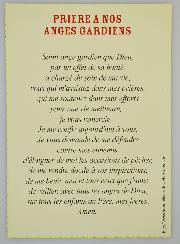 PRIERE A NOS
ANGES GARDIENS
Saint ange gardien que Dieu,
par un effet de sa bonté,
a chargé du soin de ma vie,
vous qui m'assistez dans mes prières,
qui me soutenez dans mes efforts
pour une vie meilleure,
je vous remercie
Je me confie aujourd'hui à vous.
Je vous demande de me défendre
contre mes ennemis
d'éloigner de moi les occasions de pécher,
de me rendre docile à vos inspirations,
de me bénir, moi et tous ceux que j'aime,
de veiller, avec tous les anges de Dieu,
sur tous les enfants du Père, mes frères.
Amen.